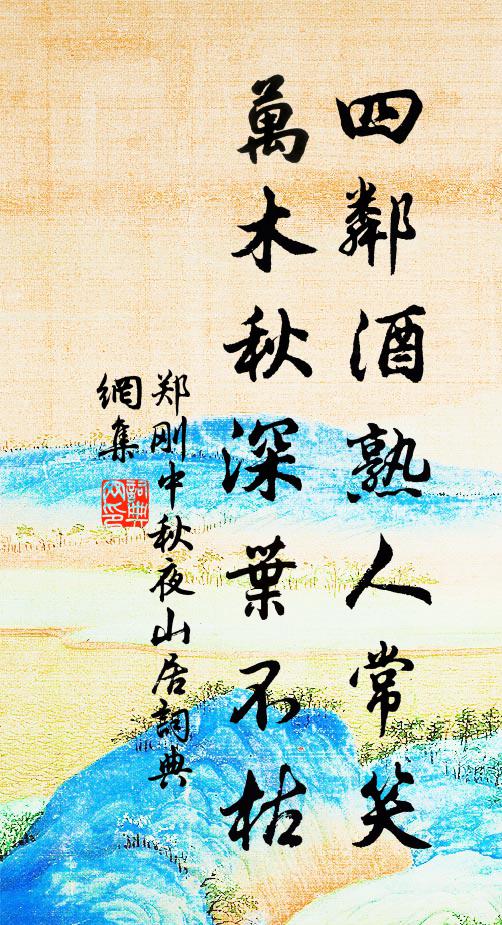 四鄰酒熟人常笑
萬木秋深葉不枯
郑刚中秋夜山居詞典
網集
詞典